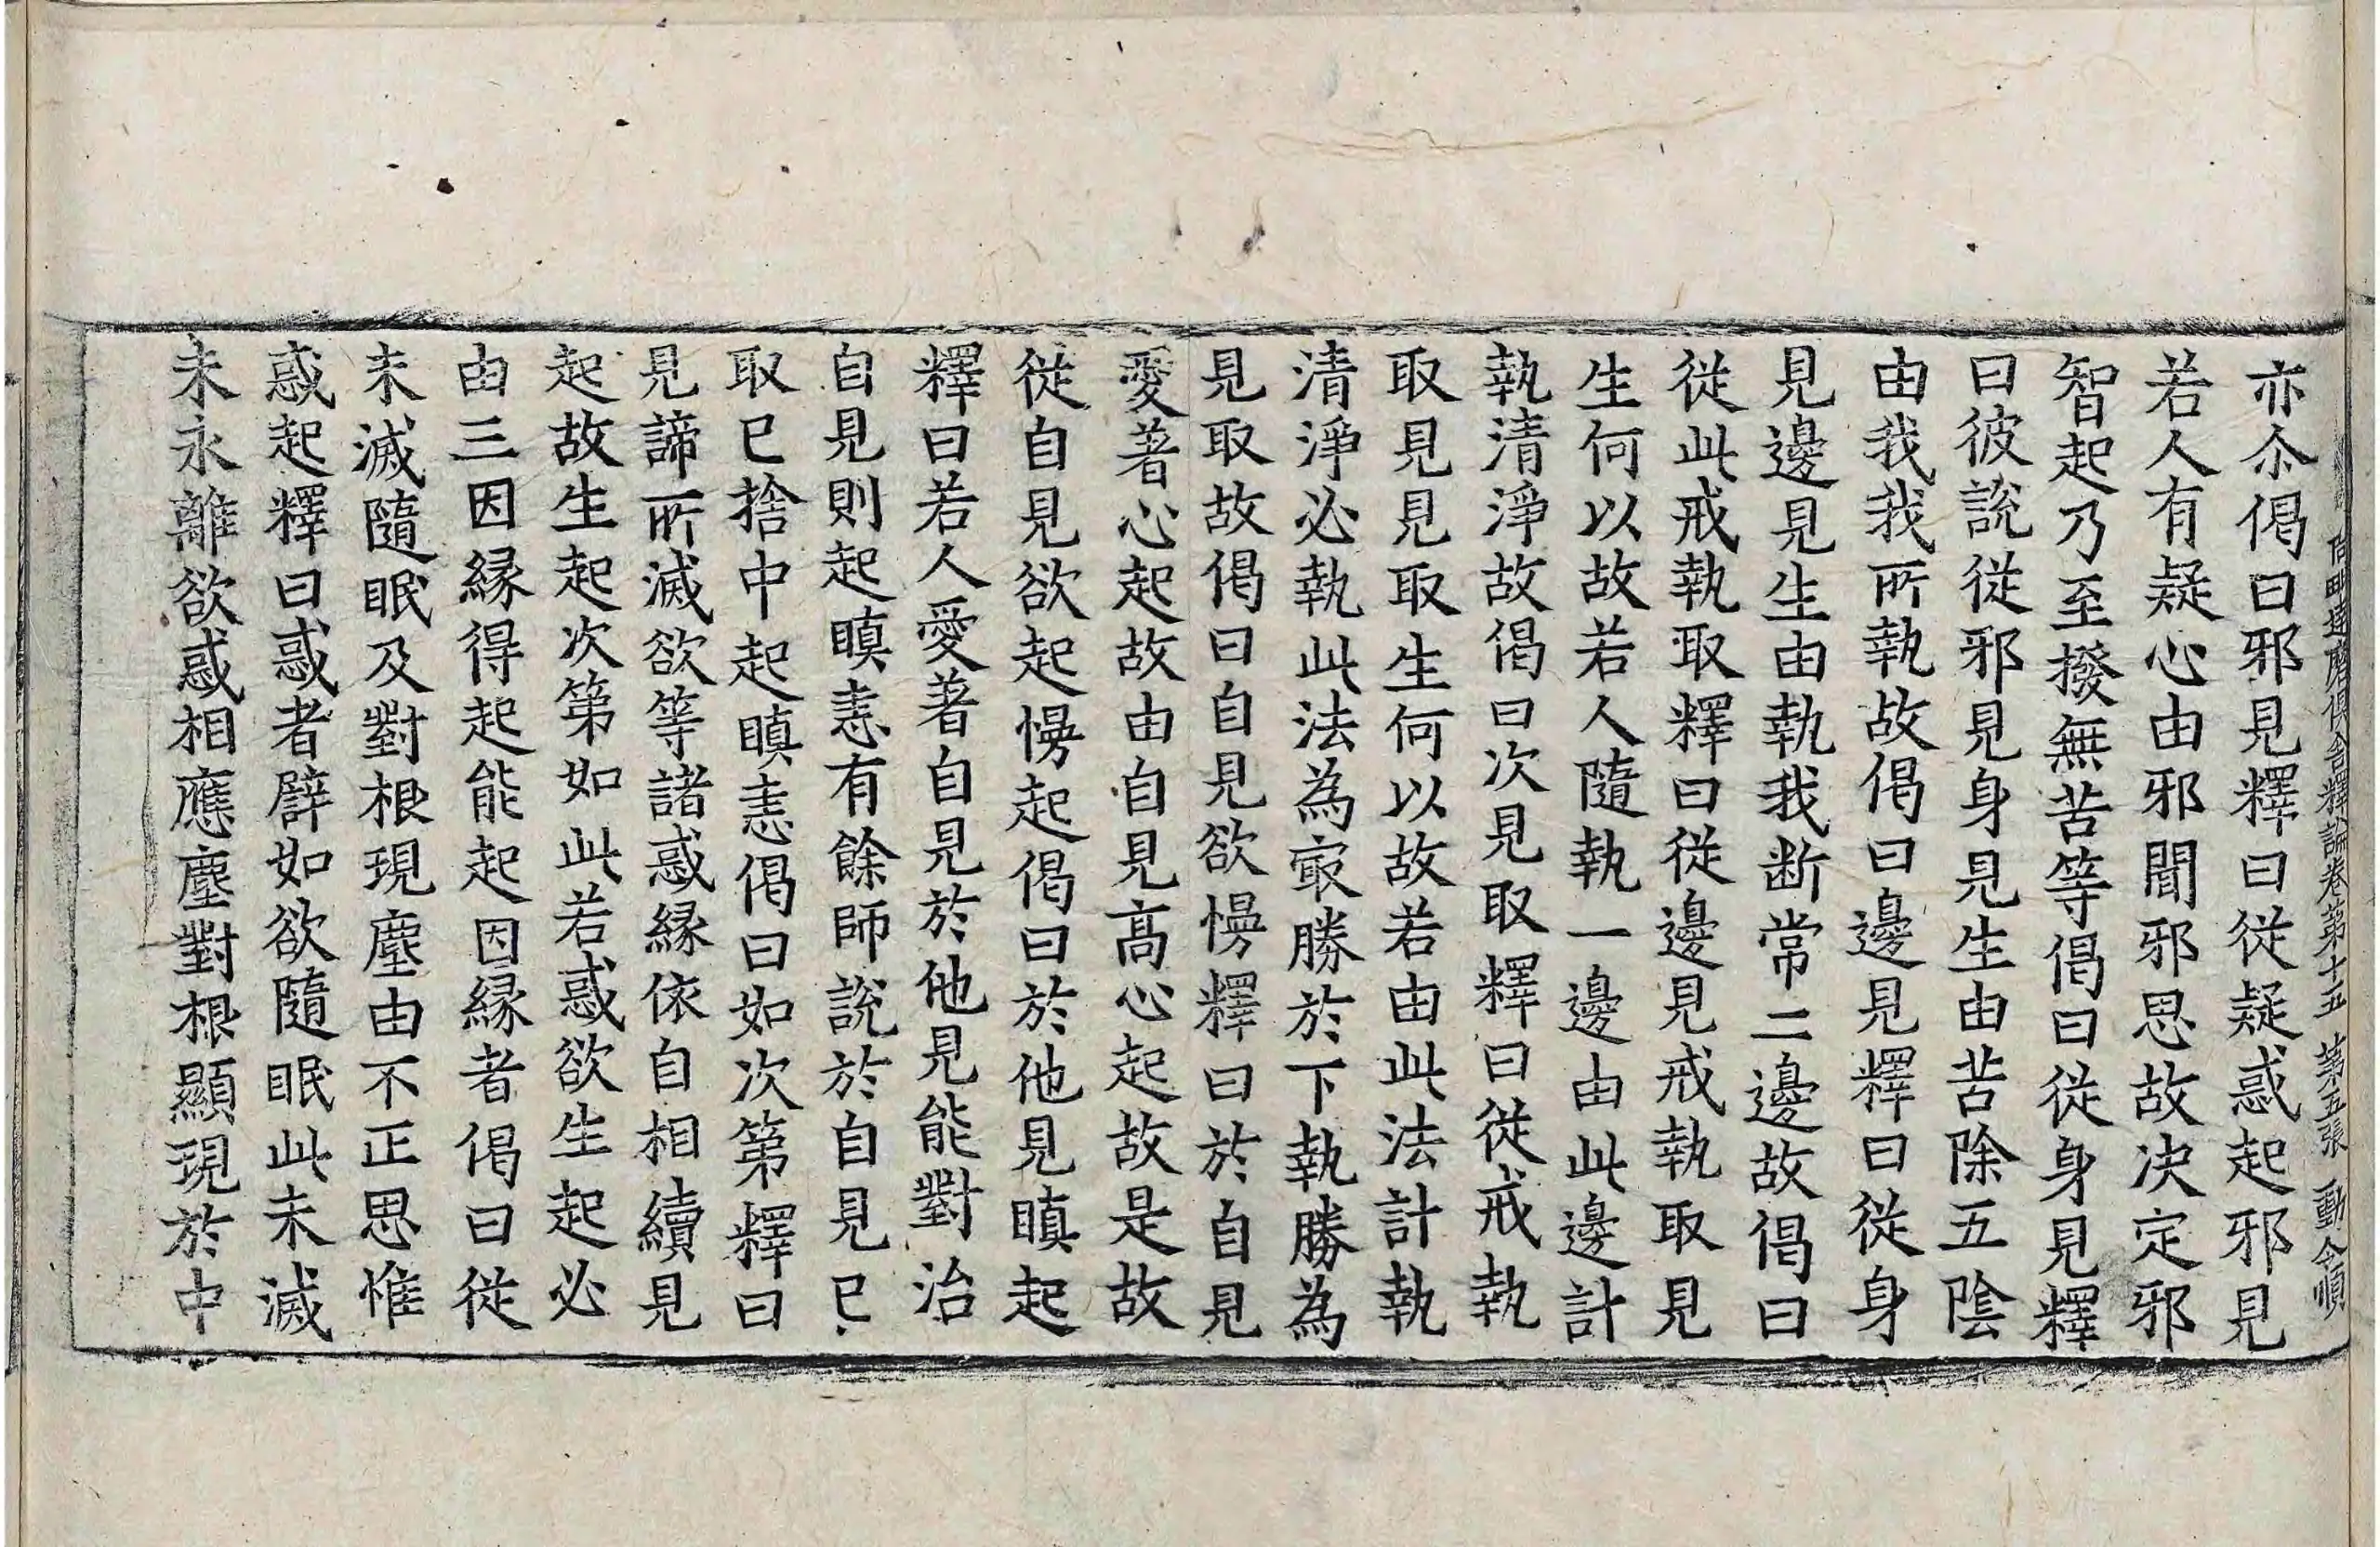 毗達磨俱舍釋論卷第十五 第五張 動 令順
亦尒偈曰邪見釋曰從疑惑起邪見
若人有疑心由邪聞邪思故决定邪
智起乃至撥無苦等偈曰從身見釋
曰彼說從邪見身見生由苦除五陰
由我我所執故偈曰邊見釋曰從身
見邊見生由執我断常二邊故偈曰
從此戒執取釋曰從邊見戒執取見
生何以故若人隨執一邊由此邊計
執清淨故偈曰次見取釋曰從戒執
取見見取生何以故若由此法計執
清淨必執此法為㝡勝於下執勝為
見取故偈曰自見欲慢釋曰於自見
愛著心起故由自見高心起故是故
從自見欲起慢起偈曰於他見瞋起
釋曰若人愛著自見於他見能對治
自見則起瞋恚有餘師說於自見已
取已捨中起瞋恚偈曰如次第釋曰
見諦所滅欲等諸惑緣依自相續見
起故生起次第如此若惑欲生起必
由三因緣得起能起因緣者偈曰從
未滅隨眠及對根現塵由不正思惟
惑起釋曰惑者譬如欲隨眠此未滅
未永離欲惑相應塵對根顯現於中